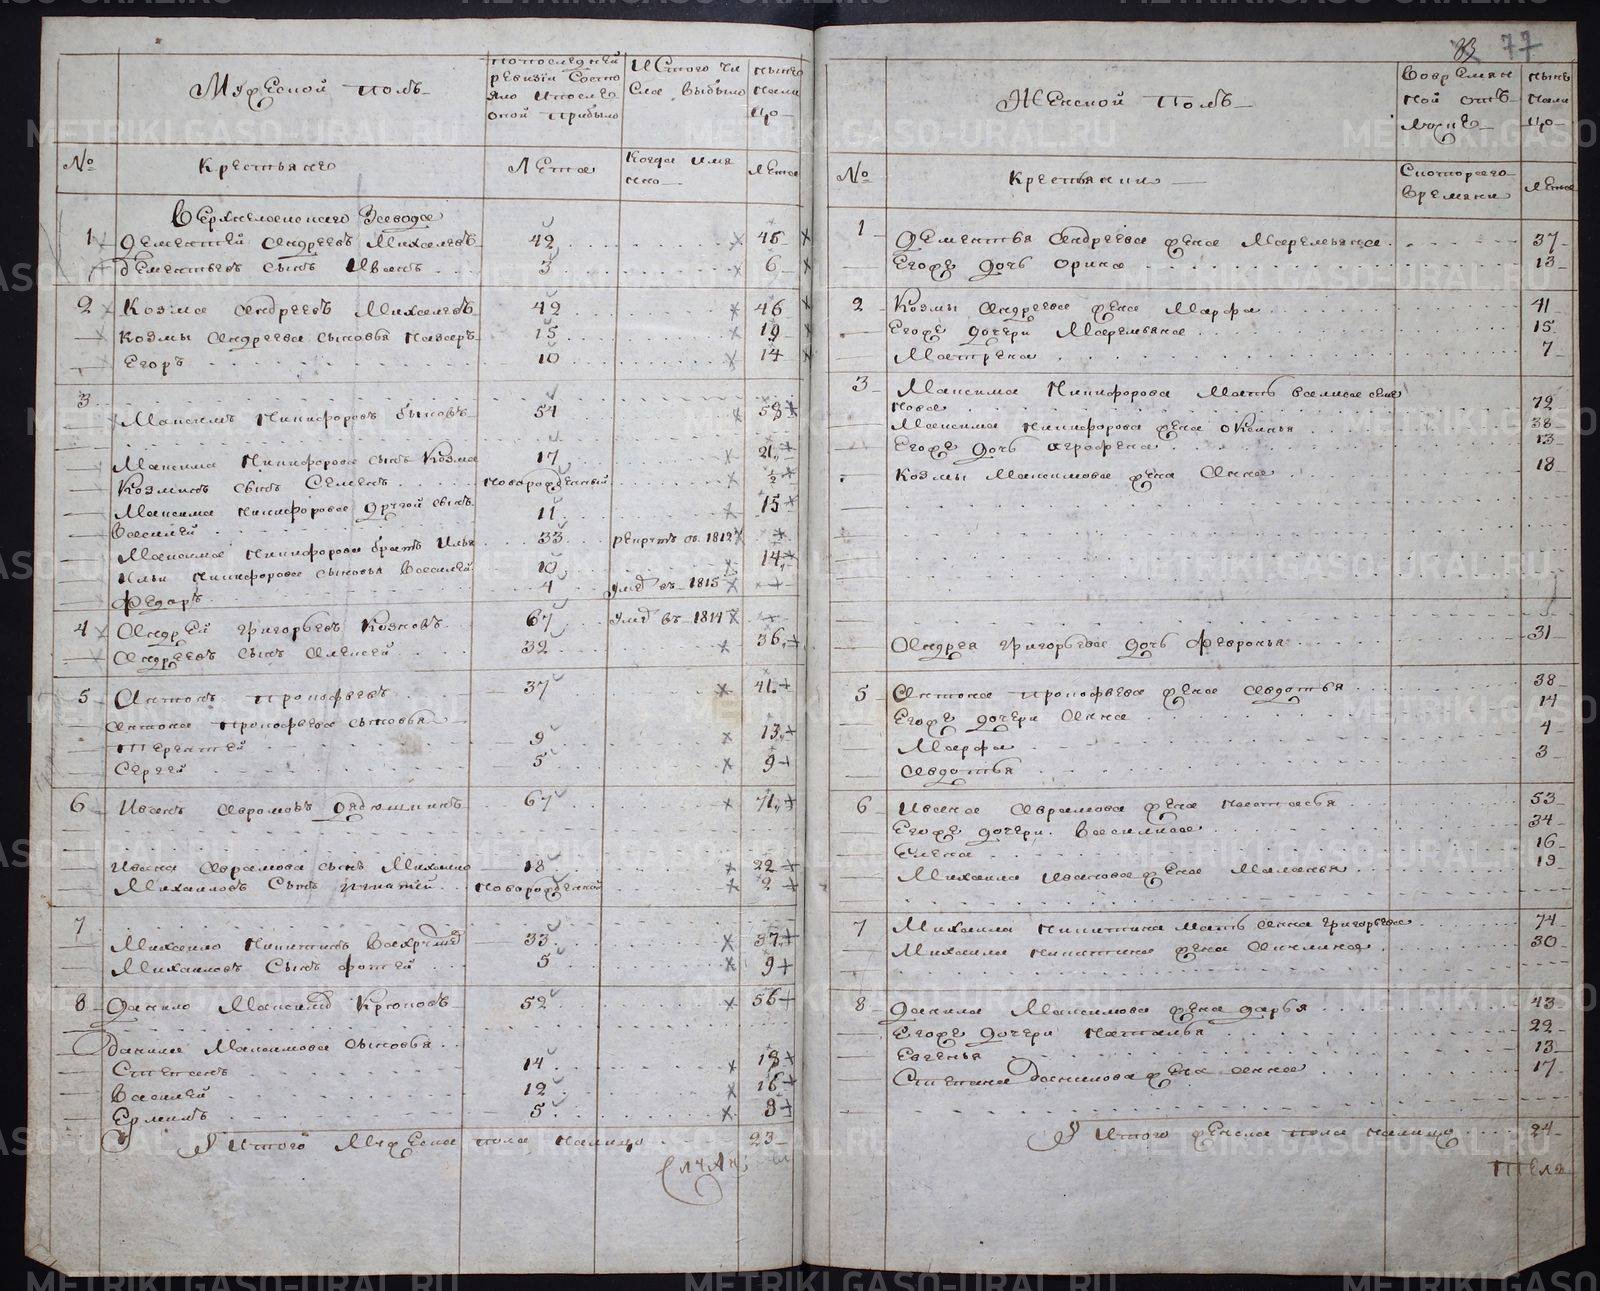 33 77
Мужеской полъ
попоследней ревизïи состояло ипосле оной прибыло
Истого числа выбыло
ныне налицо
№
Крестьяне
Лета
Когда имянно
Лета
Верх Заводе
1 Дементей Андреевъ Михалевъ 42 45
Дементьевъ сынъ Иванъ 3 6
2 Козма Андреевъ Михалевъ 42 46
Козмы Андреева сыновья Назаръ 15 19
Егоръ 10 14
3
Максимъ Никифоровъ Быковъ 54 58
Максима Никифорова сынъ Козма 17 21
Козминъ сынъ Семенъ новорожденный ½
Максима Никифорова другой сынъ
Василей 11 15
Максима Никифорова братъ Илья 33 рекрутъ въ 1812
Ильи Никифорова сыновья Василей 10 14
Федоръ 4 умре въ 1815
4 Андрей Григорьевъ Козловъ 67 умре въ 1814
Андреевъ сынъ Алексей 32 36
5 Антонъ Прокофьевъ 37 41
Антона Прокофьева сыновья
Терентей 9 13
Сергей 5 9
6 Иванъ Аврамовъ Дядюшкинъ 67 71
Ивана Аврамова сынъ Михаило 18 22
Михаиловъ Сынъ Игнатей новорожденной 2
7
Михаило Никитинъ 33 37
Михаиловъ Сынъ Фотей 5 9
8 Данило Максимовъ Крюковъ 52 56
Данила Максимова сыновья
Степанъ 14 18
Василей 12 16
Ермилъ 5 9
Итого Мужеска пола налицо 23
Женской Полъ
Вовремянной отлучке
ныне налицо
№
Крестьянки
Скотораго времяни
Лета
1
Дементья Андреева жена Маремьяна 37
Егоже дочь Орина 13
2 Козмы Андреева жена Марфа 41
Егоже дочери Маремьяна 15
Матрена 7
3 Максима Никифорова Мать Василиса
72
Максима Никифорова жена 38
Егоже дочь Аграфена 13
Козмы Максимова жена Анна 18
Андрея Григорьева дочь Февронья 31
5 Антона Прокофьева жена Авдотья 38
Егоже дочери Анна 14
Марфа 4
Авдотья 3
6 Ивана Аврамова жена Настасья 53
Егоже дочери Василиса 34
Елена 16
Михаила Иванова жена Маланья 19
7 Михаила Никитина мать Анна Григорьева 74
Михаила Никитина жена Акилина 30
8 Данила Максимова жена Дарья 43
Егоже дочери Наталья 22
Евгенья 13
Степана Данилова жена Анна 17
Итого женска пола налицо 24
METRIKI.GASO-URAL.RU